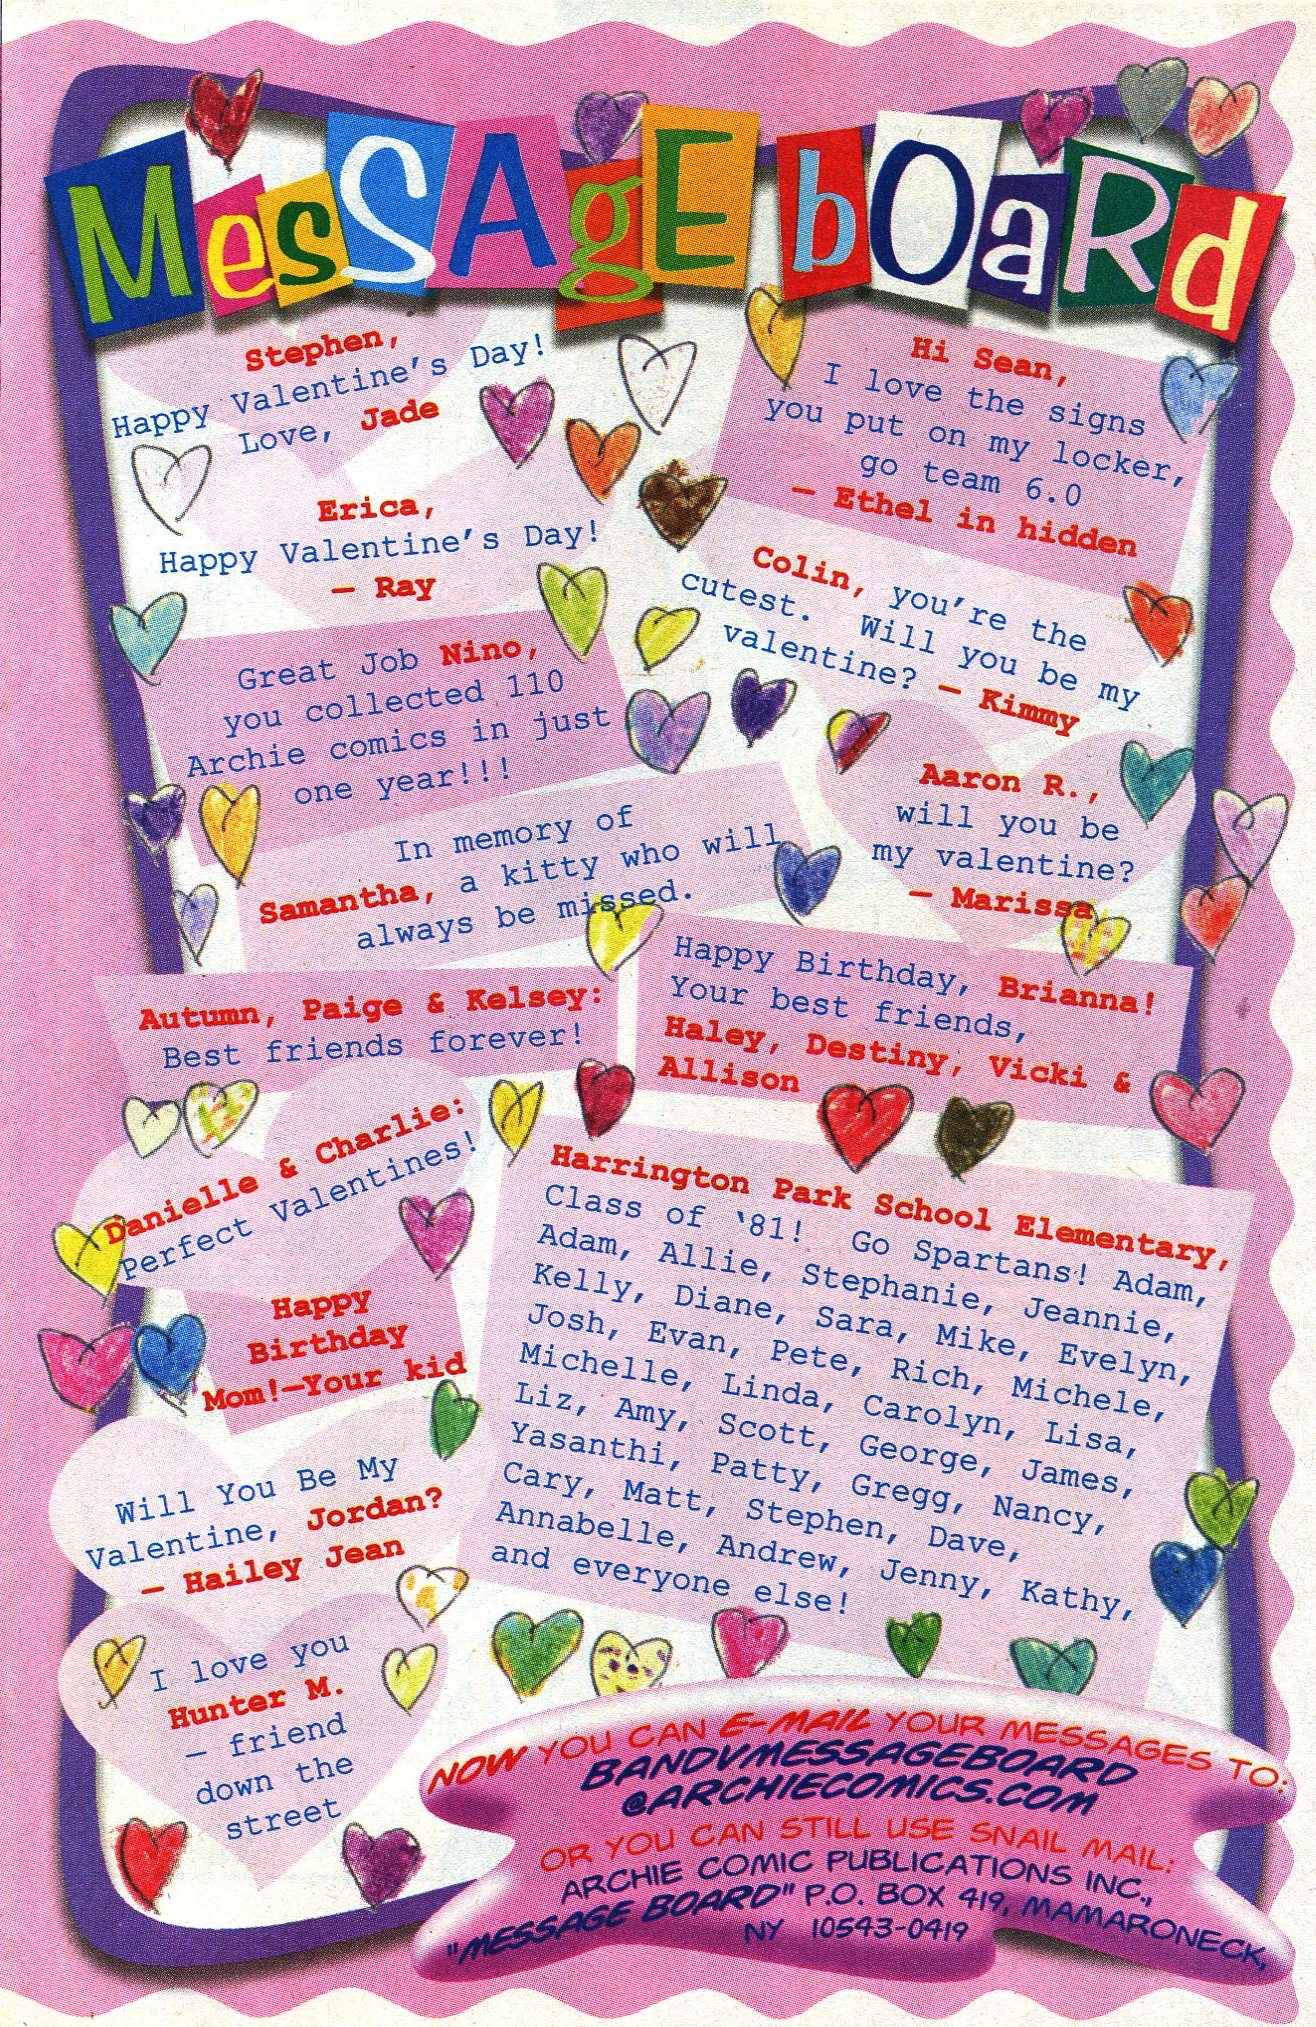 MesSAgE bOaRd
Stephen,
Happy Valentine's Day!
Love, Jade
Erica,
Happy Valentine's Day!
— Ray
Great Job Nino,
you collected 110
Archie comics in just
one year!!!
In memory of
Samantha, a kitty who will
always be missed.
Autumn, Paige & Kelsey:
Best friends forever!
Danielle & Charlie:
Perfect Valentines!
Happy
Birthday
Mom!—Your kid
Will You Be My
Valentine, Jordan?
— Hailey Jean
I love you
Hunter M.
— friend
down the
street
Hi Sean,
I love the signs
you put on my locker,
go team 6.0
— Ethel in hidden
Colin, you're the
cutest. Will you be my
valentine? — Kimmy
Aaron R.,
will you be
my valentine?
— Marissa
Happy Birthday, Brianna!
Your best friends,
Haley, Destiny, Vicki &
Allison
Harrington Park School Elementary,
Class of '81! Go Spartans! Adam,
Adam, Allie, Stephanie, Jeannie,
Kelly, Diane, Sara, Mike, Evelyn,
Josh, Evan, Pete, Rich, Michele,
Michelle, Linda, Carolyn, Lisa,
Liz, Amy, Scott, George, James,
Yasanthi, Patty, Gregg, Nancy,
Cary, Matt, Stephen, Dave,
Annabelle, Andrew, Jenny, Kathy,
and everyone else!
NOW YOU CAN E-MAIL YOUR MESSAGES TO:
BANDVMESSAGEBOARD
@ARCHIECOMICS.COM
OR YOU CAN STILL USE SNAIL MAIL:
ARCHIE COMIC PUBLICATIONS INC.,
"MESSAGE BOARD" P.O. BOX 419, MAMARONECK,
NY 10543-0419